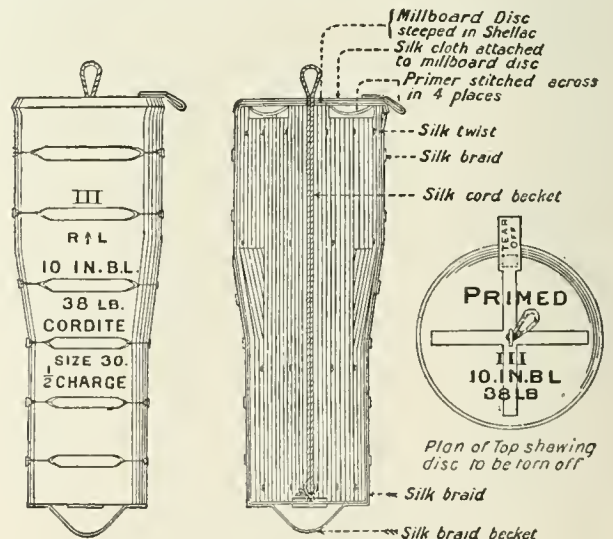 III
R↑L
10 IN.B.L.
38 LB.
CORDITE
SIZE 30.
½ CHARGE
Millboard Disc
steeped in Shellac
Silk cloth attached
to millboard disc
Primer stitched across
in 4 places
Silk twist
Silk braid
Silk cord becket
Silk braid
Silk braid becket
TEAR
OFF
PRIMED
III
10.IN.B L
38 LB
Plan of Top shewing
disc to be torn off